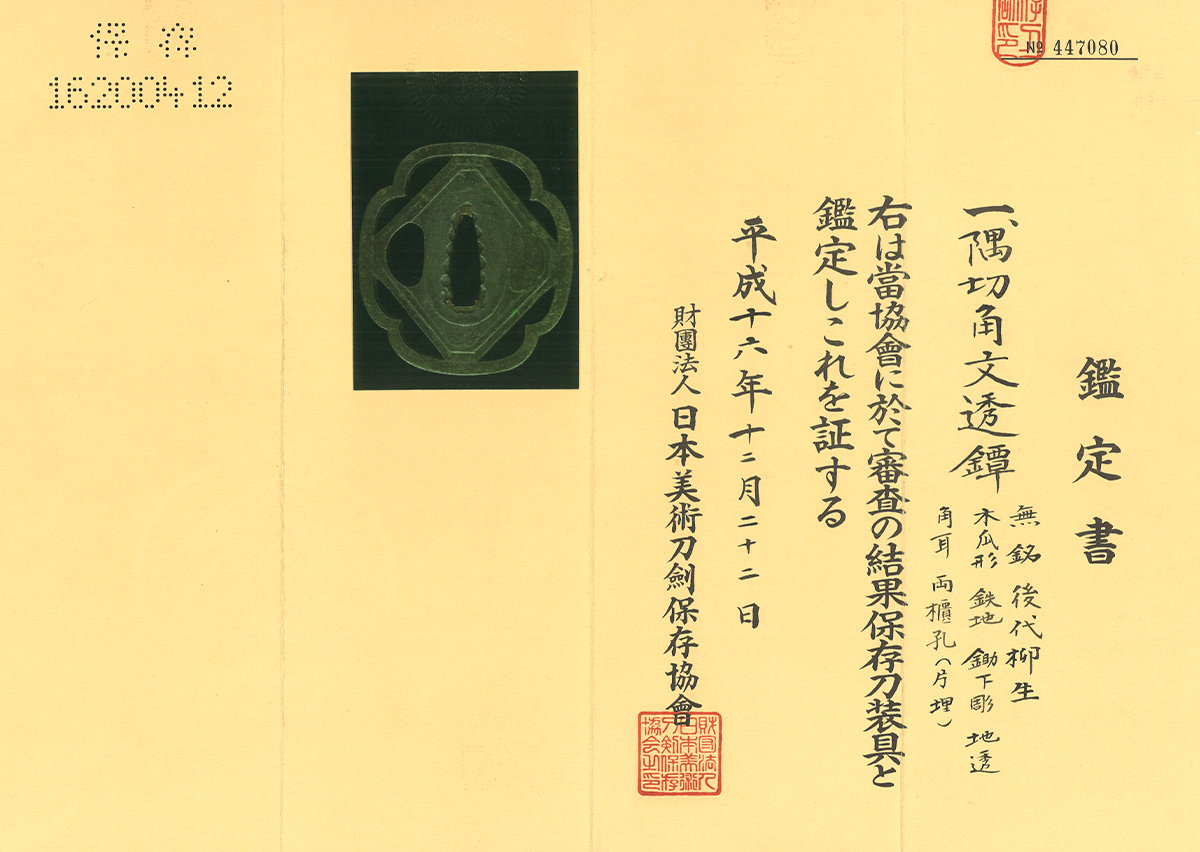 保存
16200412
№ 447080
鑑定書
一、隅切角文透鐔
無銘 後代柳生
木瓜形 鉄地 鋤下彫 地透
角耳 両櫃孔(片埋)
右は當協會に於て審査の結果保存刀装具と
鑑定しこれを証する
平成十六年十二月二十二日
財團法人 日本美術刀劍保存協會
財団法人
日本美術
刀剣保存
協会之印